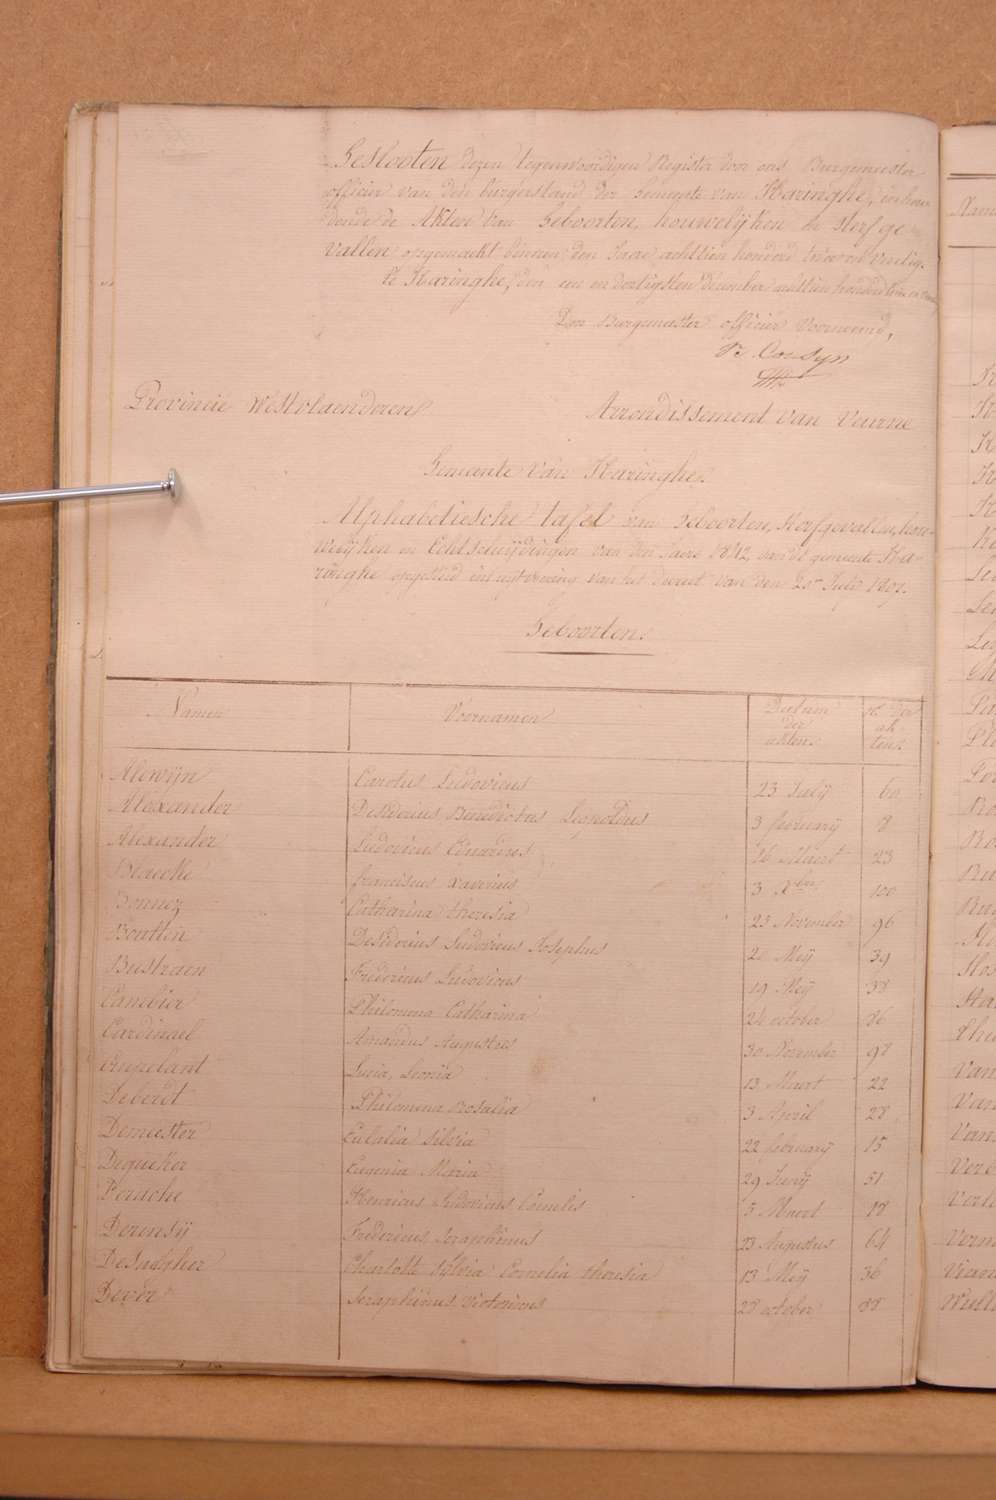 Geslooten dezen tegenwoordigen Register door ons Burgemeester
officier van den burgerstand der gemeente van Haringhe, inhou-
dende de Akten van Geboorten, houwelijken en sterfge
vallen opgemaekt binnen den Jaere achttien honderd twee en veertig.
te Haringhe, den een en dertigsten december achttien honderd twee en
Den Burgemeester officier voornoemd,
Cousyn
Provincie Westvlaenderen
Arrondissement van Veurne
Gemeente van Haringhe.
Alphabetiesche tafel van Geboorten, Sterfgevallen, hou-
welijken en Echtscheijdingen van den Jaere 1842, van de gemeente Ha-
ringhe opgesteld in uijtvoering van het decreet van den 20n July 1807.
Geboorten.
Namen Voornamen Datum der akten. N. der ak-ten.
Alewijn Carolus Ludovicus 23 July 60
Alexander Desiderius Benedictus Leopoldus 3 february 8
Alexander Ludovicus Eduardus 16 Maert 23
Beaecke franciscus Xaverius 3 Xber 100
Bonnez Catharina theresia 25 November 96
Boutten Desiderius Ludovicus Josephus 20 Meij 39
Bustraen Fredericus Ludovicus 19 Meij 38
Cambier Philomena Catharina 24 october 86
Cardinael Amandus Augustus 30 November 98
Lucia, Leonia 13 Maert 22
Deberdt Philomena Rosalia 3 April 28
Demeester Eulalia Silvia 22 february 15
Dequeker Eugenia Maria 29 Junij 51
Henricus Ludovicus Cornelis 5 Maert 18
Derensij Fredericus Seraphinus 23 Augustus 64
Desaegher Charlotte Sylvia Cornelia theresia 13 Meij 36
Devos Seraphinus Victorinus 28 october 88